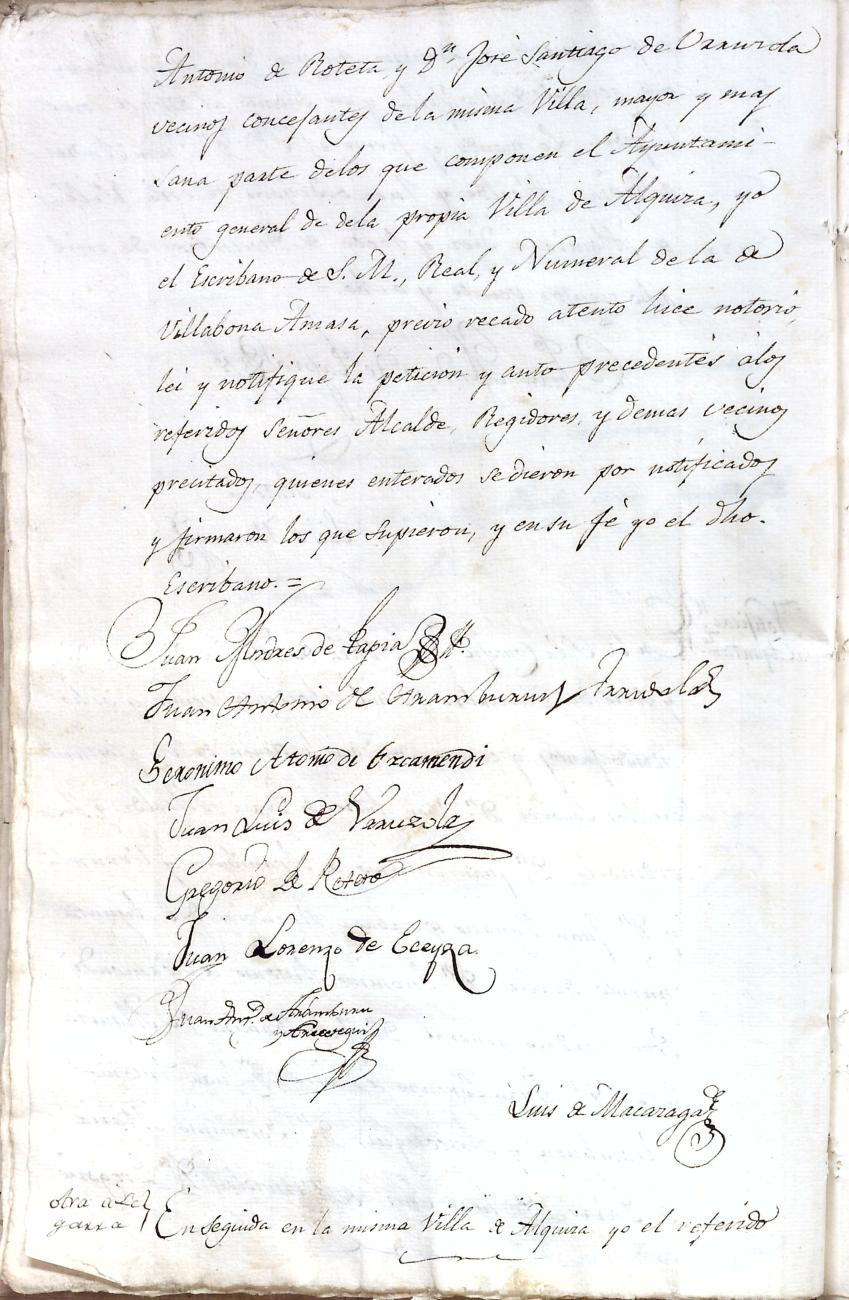 Antonio de Roteta, y Dn. José Santiago de Urruzola
vecinos concejantes de la misma Villa, mayor y mas
sana parte delos que componen el Ayuntami-
ento general de dela propia Villa de Alquiza, yo
el Escribano de S. M., Real, y Numeral de la de
Villabona Amasa, previo recado atento hice notorio,
lei y notifique la peticion y auto precedentes álos
referidos Señores Alcalde, Regidores, y demas vecinos
precitados, quienes enterados se dieron por notificados
y firmaron los que supieron, y en su fé yo el dho.
Escribano. =
Juan Andres de tapia
Juan Antonio de Aramburu y
Geronimo Antonio de
Juan Luis de Urruzola
Gregorio de
Juan Lorenzo de Eceyza.
Juan Ant. de Aramburu
y
Luis de Macazaga
otra á
Enseguida en la misma Villa de Alquiza yo el referido